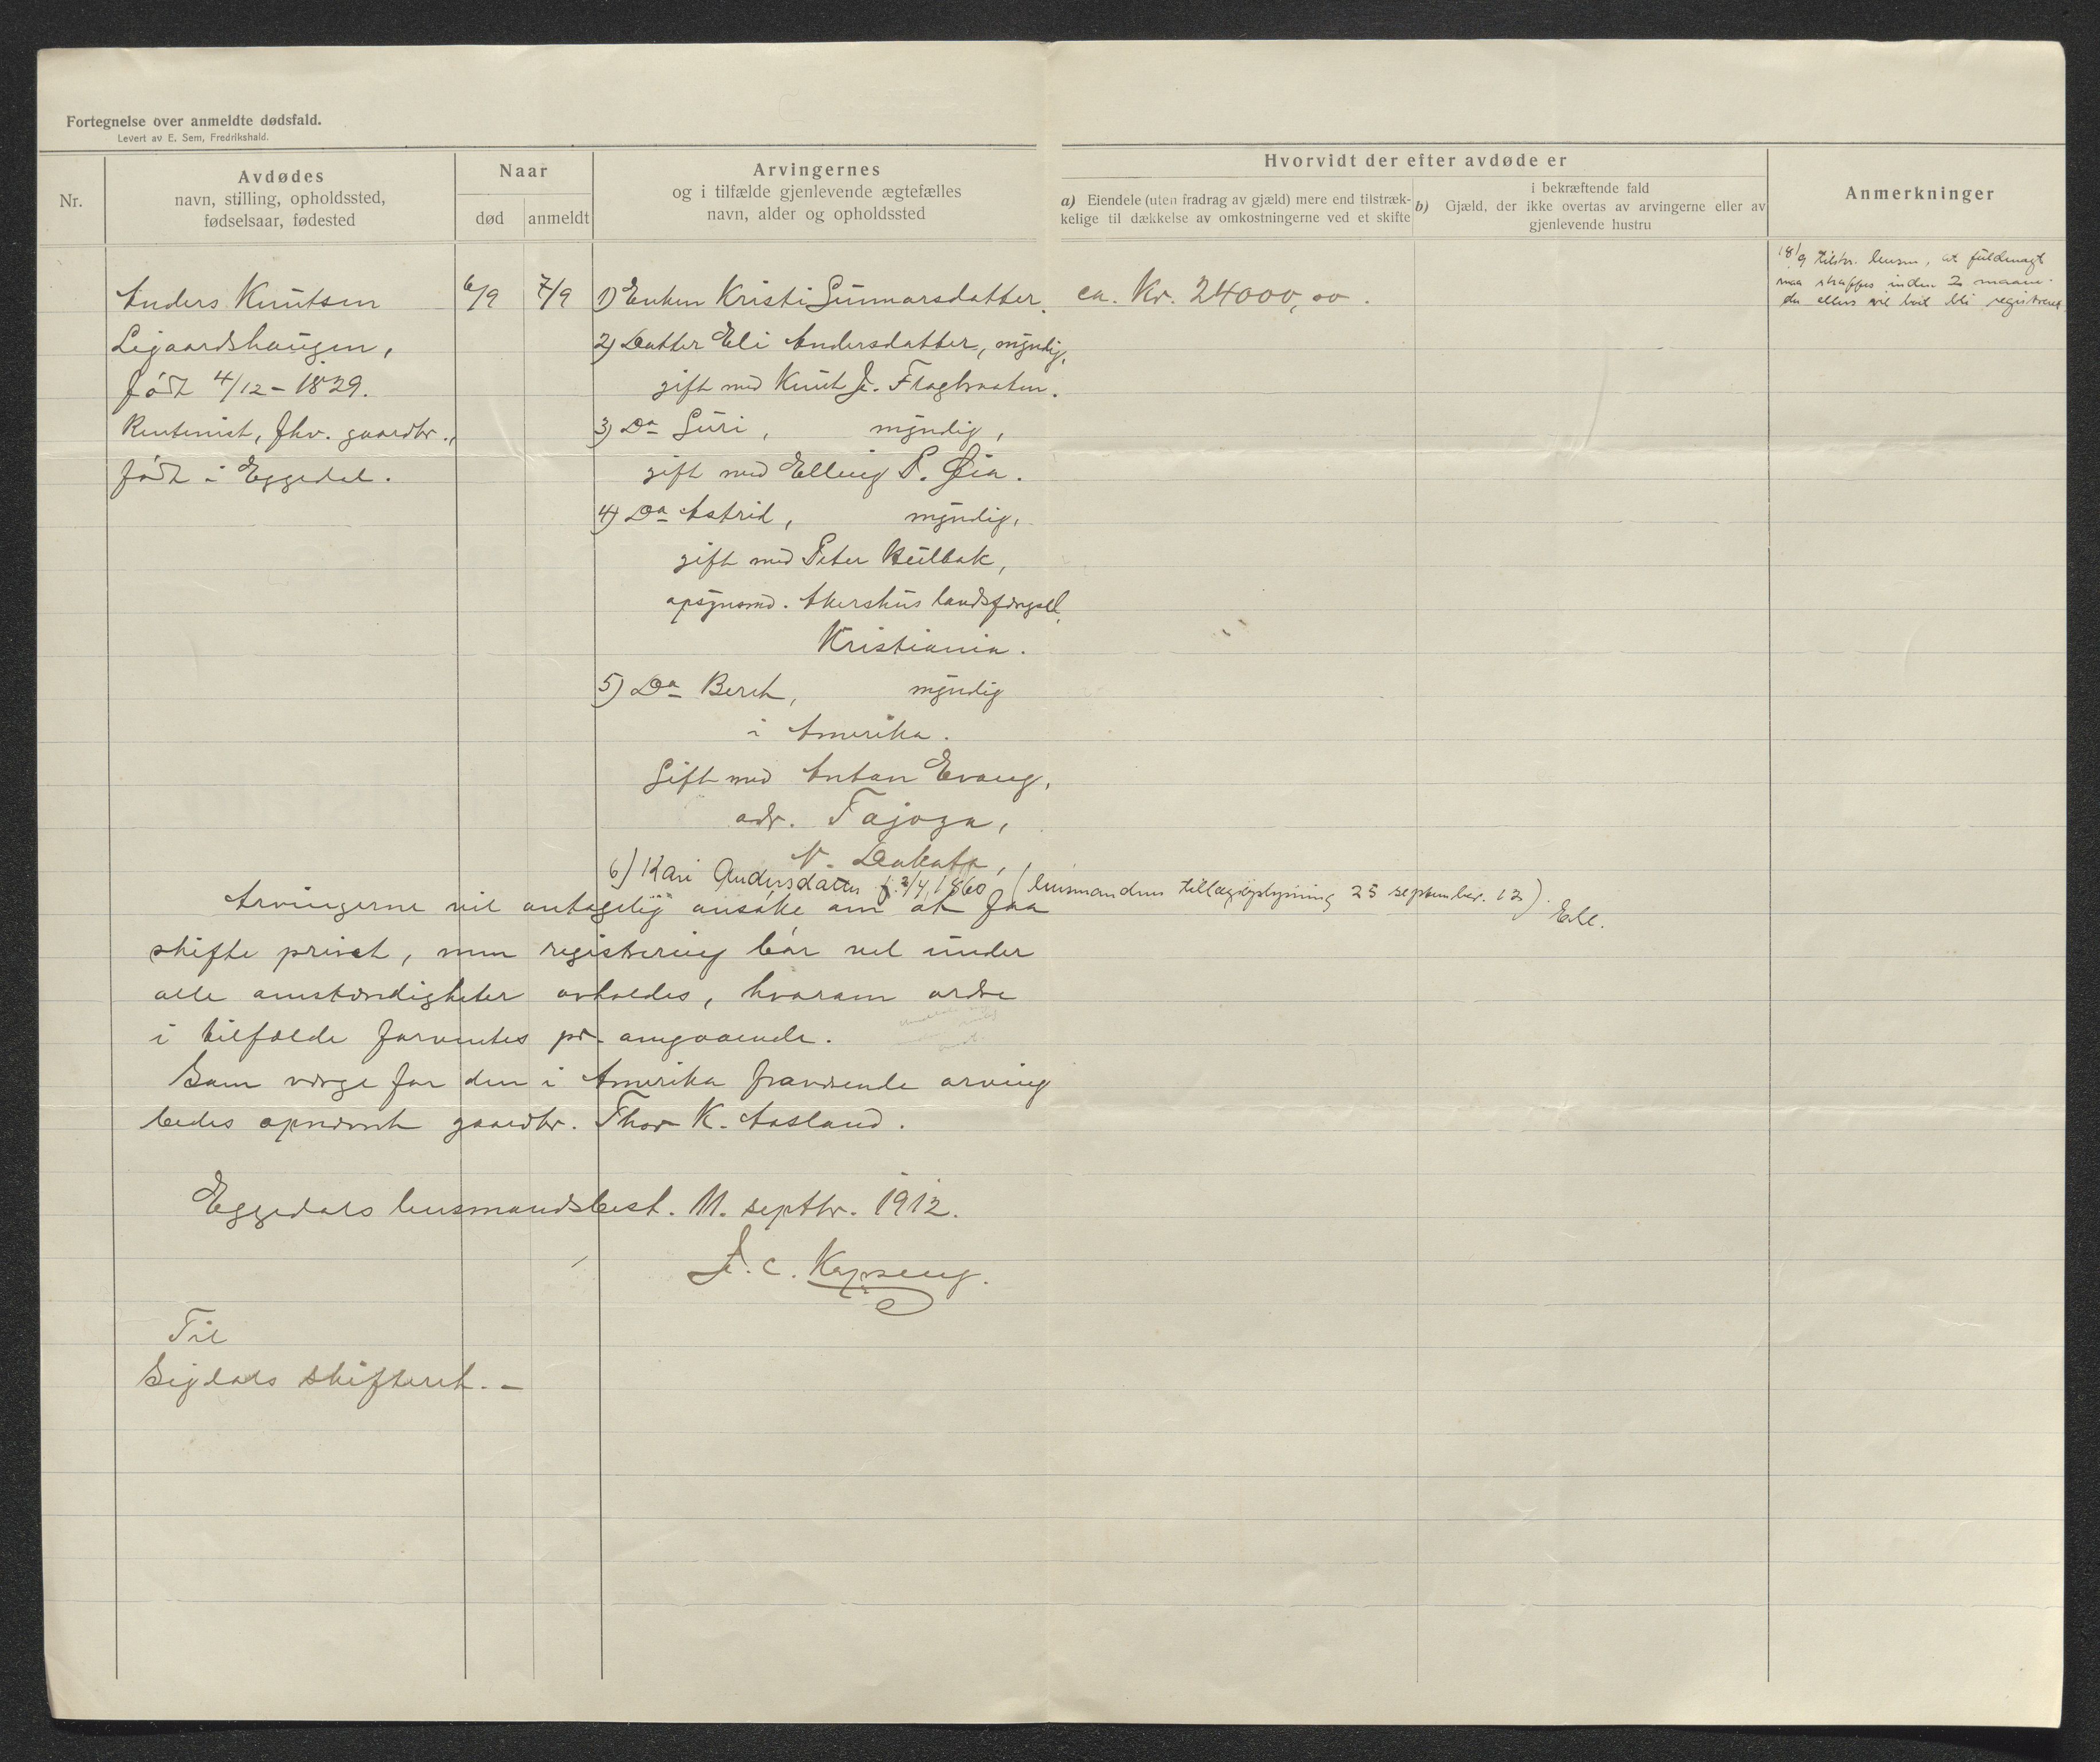 Fortegnelse over anmeldte dødsfald.
Levert av E. Sem, Fredrikshald.
Nr.
Avdødes
navn, stilling, opholdssted,
fødselsaar, fødested
Naar
død
anmeldt
Arvingernes
og i tilfælde gjenlevende ægtefælles
navn, alder og opholdssted
Hvorvidt der efter avdøde er
a) Eiendele (uten fradrag av gjæld) mere end tilstræk-
kelige til dækkelse av omkostningerne ved et skifte
i bekræftende fald
b) Gjæld, der ikke overtas av arvingerne eller av
gjenlevende hustru
Anmerkninger
Anders Knutsen
Ligaardshaugen,
født 4/12 - 1829.
Rentenist, fhv. gaardbr.,
født i Eggedal.
6/9
7/9
1) Enken Kristi Gunnarsdatter.
2) Datter Eli Andersdatter, myndig,
gift med Knut J. Flagbraaten.
3) Do Guri, myndig,
gift med Elling P. Øia.
4) Do Astrid, myndig,
gift med Peter Kulbak,
opsynsmd. Akershus landsfængsel,
Kristiania.
5) Do Beret, myndig
i Amerika.
Gift med Anton Evang,
adr. Tajoga,
N. Dakota,
6) Kari Andersdatter f. 2/4, 1860 (lensmandens tillægsoplysning 25 september. 12).
ca. Kr. 24000,00.
18/9 tilskr. lensm., at fuldmagt
maa skaffes inden 2 maane-
der ellers vil boet bli registreret
Arvingerne vil antagelig ansøke om at faa
skifte privat, men registrering bør vel under
alle omstændigheter avholdes, hvorom ordre
i tilfælde forventes pr. omgaaende.
Som værge for den i Amerika fraværende arving
bedes opnævnt gaardbr. Thor K. Aasland.
Eggedals lensmandsbest. 11. septbr. 1912.
J. C. Kopseng.
Til
Sigdals skifteret. -